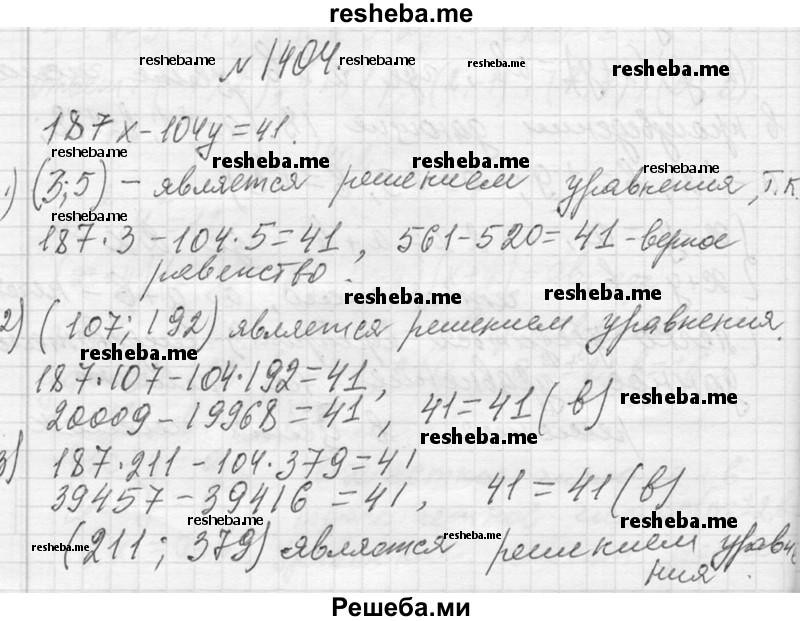 resheba.me
№ 1404.
resheba.me resheba.me resheba.me resheba.me
187x-104y=41.
resheba.me resheba.me resheba.me resheba.me
1) (3;5) - является решением уравнения, т.к.
resheba.me
187·3-104·5=41, 561-520=41-верное
равенство.
resheba.me resheba.me
2) (107; 192) является решением уравнения.
resheba.me
187·107-104·192=41,
resheba.me
20009-19968=41, 41=41(в)
resheba.me
3) 187·211-104·379=41
39457-39416=41, 41=41(в)
resheba.me resheba.me
resheba.me resheba.me
(211; 379) является решением уравне
ния.
Решеба.ми